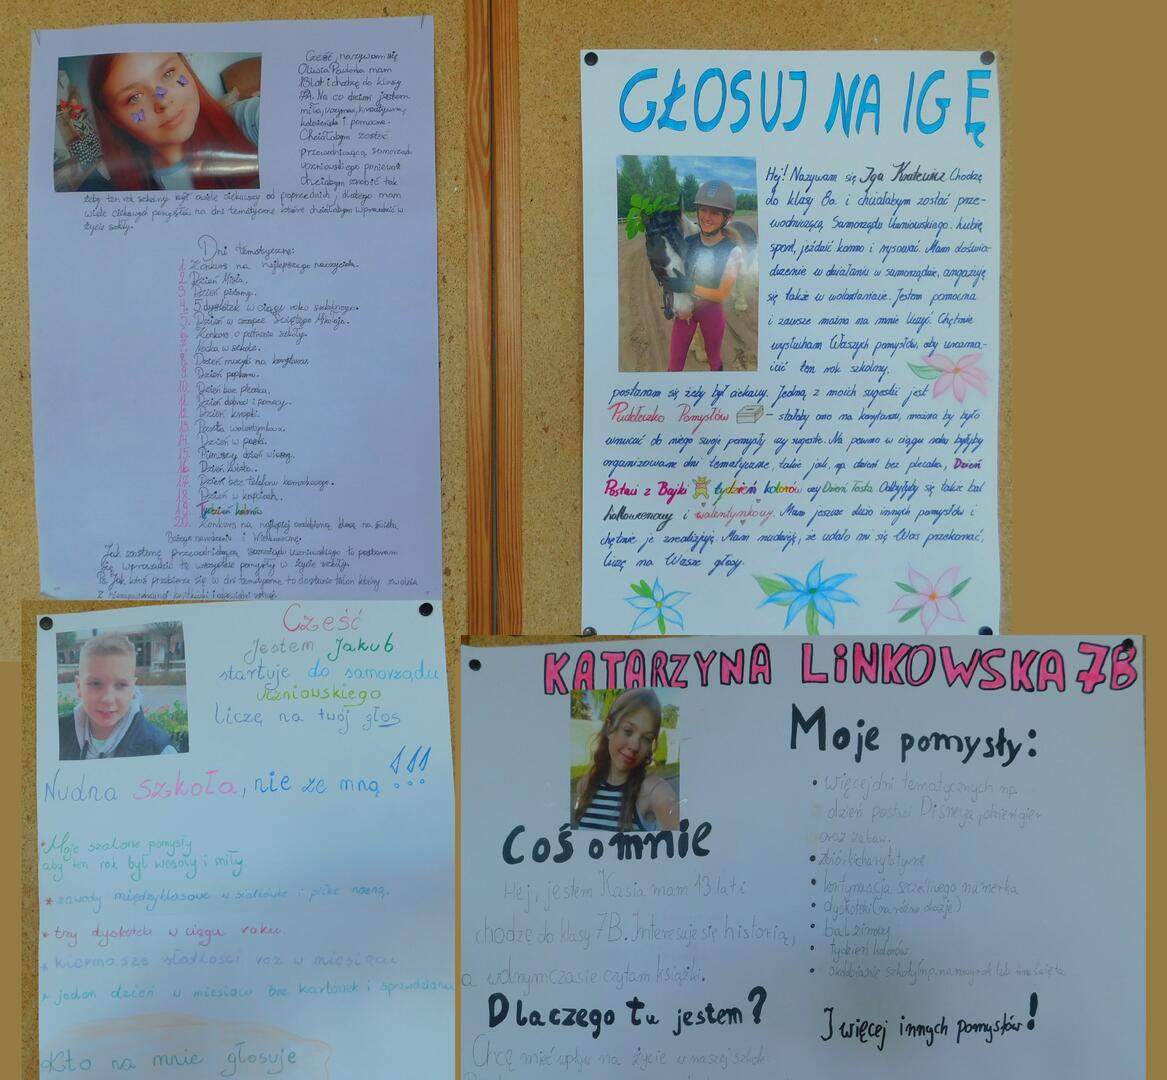 Cześć, nazywam się
Oliwia mam
13 lat i chodzę do klasy
7A. Na co dzień jestem
miła, uczynna, kreatywna,
koleżeńska i pomocna.
Chciałabym zostać
przewodniczącą samorządu
uczniowskiego ponieważ
chciałabym zrobić tak
żeby ten rok szkolny był wiele ciekawszy od poprzednich, dlatego mam
wiele ciekawych pomysłów na dni tematyczne które chciałabym wprowadzić w
życie szkoły.
Dni tematyczne:
1. Konkurs na najlepszego nauczyciela.
2. Dzień Misia.
3. Dzień piżamy.
4. 5 dyskotek w ciągu roku szkolnego.
5. Dzień w czapce Świętego Mikołaja.
6. Konkurs o patronie szkoły.
7. Nocka w szkole.
8. Dzień muzyki na korytarzu.
9. Dzień popkornu.
10. Dzień bez plecaka.
11. Dzień dobroci i pomocy.
12. Dzień kropki.
13. Poczta walentynkowa.
14. Dzień w paski.
15. Pierwszy dzień wiosny.
16. Dzień kwiata.
17. Dzień bez telefonu komórkowego.
18. Dzień w kapciach.
19. Tydzień kolorów
20. Konkurs na najlepiej ozdobioną klasę na święta
Bożego narodzenia i Wielkanocne.
Jak zostanę przewodniczącą samorządu uczniowskiego to postaram
się wprowadzić te wszystkie pomysły w życie szkoły.
Ps. Jak ktoś przebierze się w dni tematyczne to dostanie talon który zwalnia
z niezapowiedzianej kartkówki i odpowiedzi ustnej.
GŁOSUJ NA IGĘ
Hej! Nazywam się Iga Kralewicz Chodzę
do klasy 8a. i chciałabym zostać prze-
wodniczącą Samorządu Uczniowskiego. Lubię
sport, jeździć konno i rysować. Mam doświad-
czenie w działaniu w samorządzie, angażuję
się także w wolontariacie. Jestem pomocna
i zawsze można na mnie liczyć. Chętnie
wysłucham Waszych pomysłów, aby urozma-
icić ten rok szkolny,
postaram się żeby był ciekawy. Jedną z moich sugestii jest
Pudełeczko Pomysłów - stałoby ono na korytarzu, można by było
wrzucać do niego swoje pomysły czy sugestie. Na pewno w ciągu roku byłyby
organizowane dni tematyczne, takie jak, np. dzień bez plecaka, Dzień
Postaci z Bajki tydzień kolorów czy Dzień Testa. Odbyłyby się także bal
halloweenowy i walentynkowy. Mam jeszcze dużo innych pomysłów i
chętnie je zrealizuję. Mam nadzieję, że udało mi się Was przekonać,
liczę na Wasze głosy.
Cześć
Jestem Jakub
startuje do samorządu
uczniowskiego
liczę na twój głos
Nudna szkoła, nie ze mną!!!
* Moje szalone pomysły
aby ten rok był wesoły i miły.
* zawody międzyklasowe w siatkówce i piłce nożnej.
* trzy dyskoteki w ciągu roku.
* kiermasze słodkości raz w miesiącu
* jeden dzień w miesiącu bez kartówek i sprawdzianu
Kto na mnie głosuje
KATARZYNA LINKOWSKA 7B
Moje pomysły:
• więcej dni tematycznych np
dzień postaci Disneya, dzień gier
oraz zabaw.
• zbiórki charytatywne
• kontynuacja szczęśliwego numerka
• dyskoteki (na różne okazje)
• bal zimowy
• tydzień kolorów
• ozdabianie szkoły (np. na nowy rok lub inne święta
I więcej innych pomysłów!
Coś o mnie
Hej, jestem Kasia mam 13 lat i
chodzę do klasy 7B. Interesuje się historią,
a w międzyczasie czytam książki.
Dlaczego tu jestem?
Chcę mieć wpływ na życie w naszej szkole.